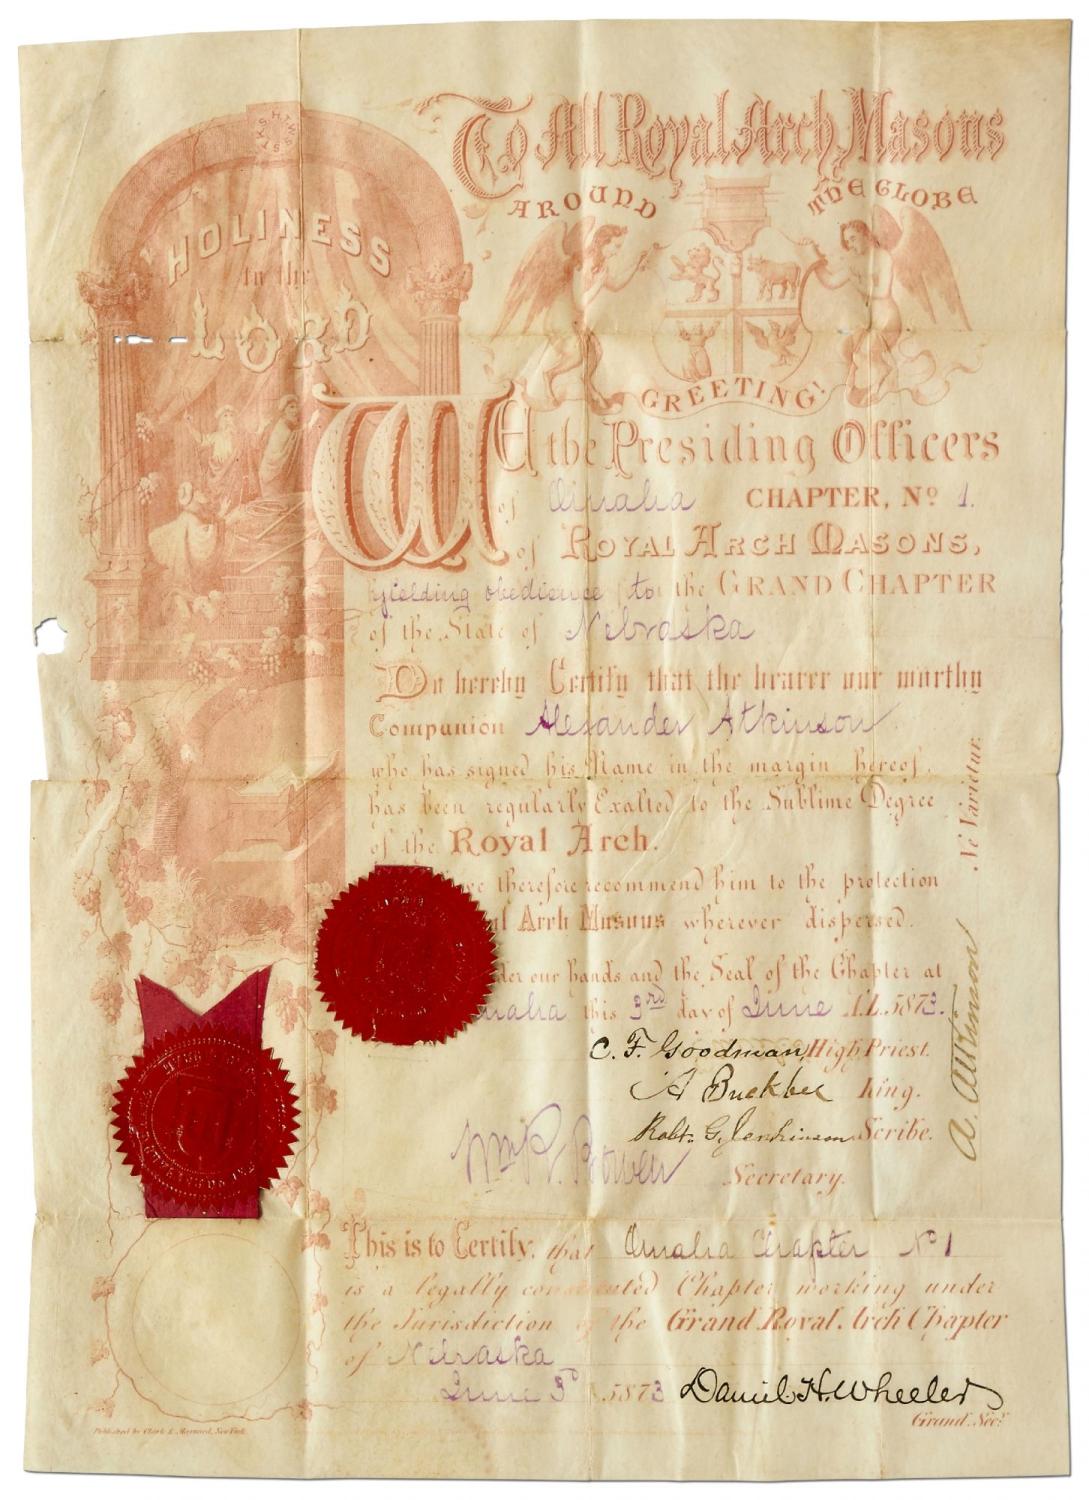 HOLINESS
to the
LORD
To All Royal Arch Masons
AROUND THE GLOBE
GREETING
WE the Presiding Officers
of Omaha CHAPTER, No 1.
of ROYAL ARCH MASONS,
yielding obedience to the GRAND CHAPTER
of the State of Nebraska
Do hereby Certify that the bearer our worthy
Companion Alexander Atkinson
who has signed his Name in the margin hereof,
has been regularly Exalted to the Sublime Degree
of the Royal Arch.
therefore recommend him to the protection
Arch Masons wherever dispersed.
our hands and the Seal of the Chapter at
this 3rd day of June A.L. 5873.
C. F. Goodman, High Priest.
A Buckbee King.
Robt. G. Jenkinson Scribe.
Wm R. Bowen Secretary.
Ne Varietur.
A. Atkinson
This is to Certify, that Omaha Chapter No 1
is a legally constituted Chapter working under
the Jurisdiction of the Grand Royal Arch Chapter
of Nebraska
June 3d 5873 Daniel H. Wheeler
Grand Secy
Published by Clark & Maynard, New York